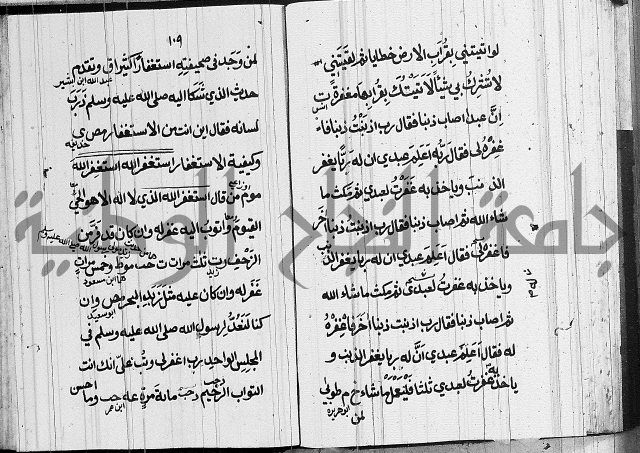 لو اتيتني بقراب الارض خطايا ثم لقيتني
لا تشرك بي شيئا لاتيتك بقرابها مغفرة ت
انس
ان عبدا اصاب ذنبا فقال رب اذنبت ذنبا فا
غفره لي فقال ربه اعلم عبدي ان له ربا يغفر
الذنب وياخذ به غفرت لعبدي ثم مكث ما
شاء الله ثم اصاب ذنبا فقال رب اذنبت ذنبا آخر
فاغفره لي فقال اعلم عبدي ان له ربا يغفر الذنب
وياخذ به غفرت لعبدي ثم مكث ما شاء الله
ثم اصاب ذنبا فقال رب اذنبت ذنبا آخر فاغفره
له فقال اعلم عبدي ان له ربا يغفر الذنب و
ياخذ به غفرت لعبدي ثلثا فليعمل ما شاء خ م طوبى
ابو هريرة
لمن
١٠٩
لمن وجد في صحيفته استغفارا كثيرا ق وتقدم
عبد الله ابن
حديث الذي شكا اليه صلى الله عليه وسلم ذرب
لسانه فقال اين انت من الاستغفار مص ي
حذيفة
وكيفية الاستغفار استغفر الله استغفر الله
موم من قال استغفر الله الذي لا اله الا هو الحي
القيوم واتوب اليه غفر له وان كان قد فر من
الزحف د ت ثلث مرات ت حب مو ط وخمس مرات
زيد
ابن مسعود
غفر له وان كان عليه مثل زبد البحر مص وان
ابو سعيد
كنا لنعد لرسول الله صلى الله عليه وسلم في
المجلس الواحد رب اغفر لي وتب علي انك انت
التواب الرحيم مائة مرة عه حب وما احسن
ابن عمر
جامعة النجاح الوطنية